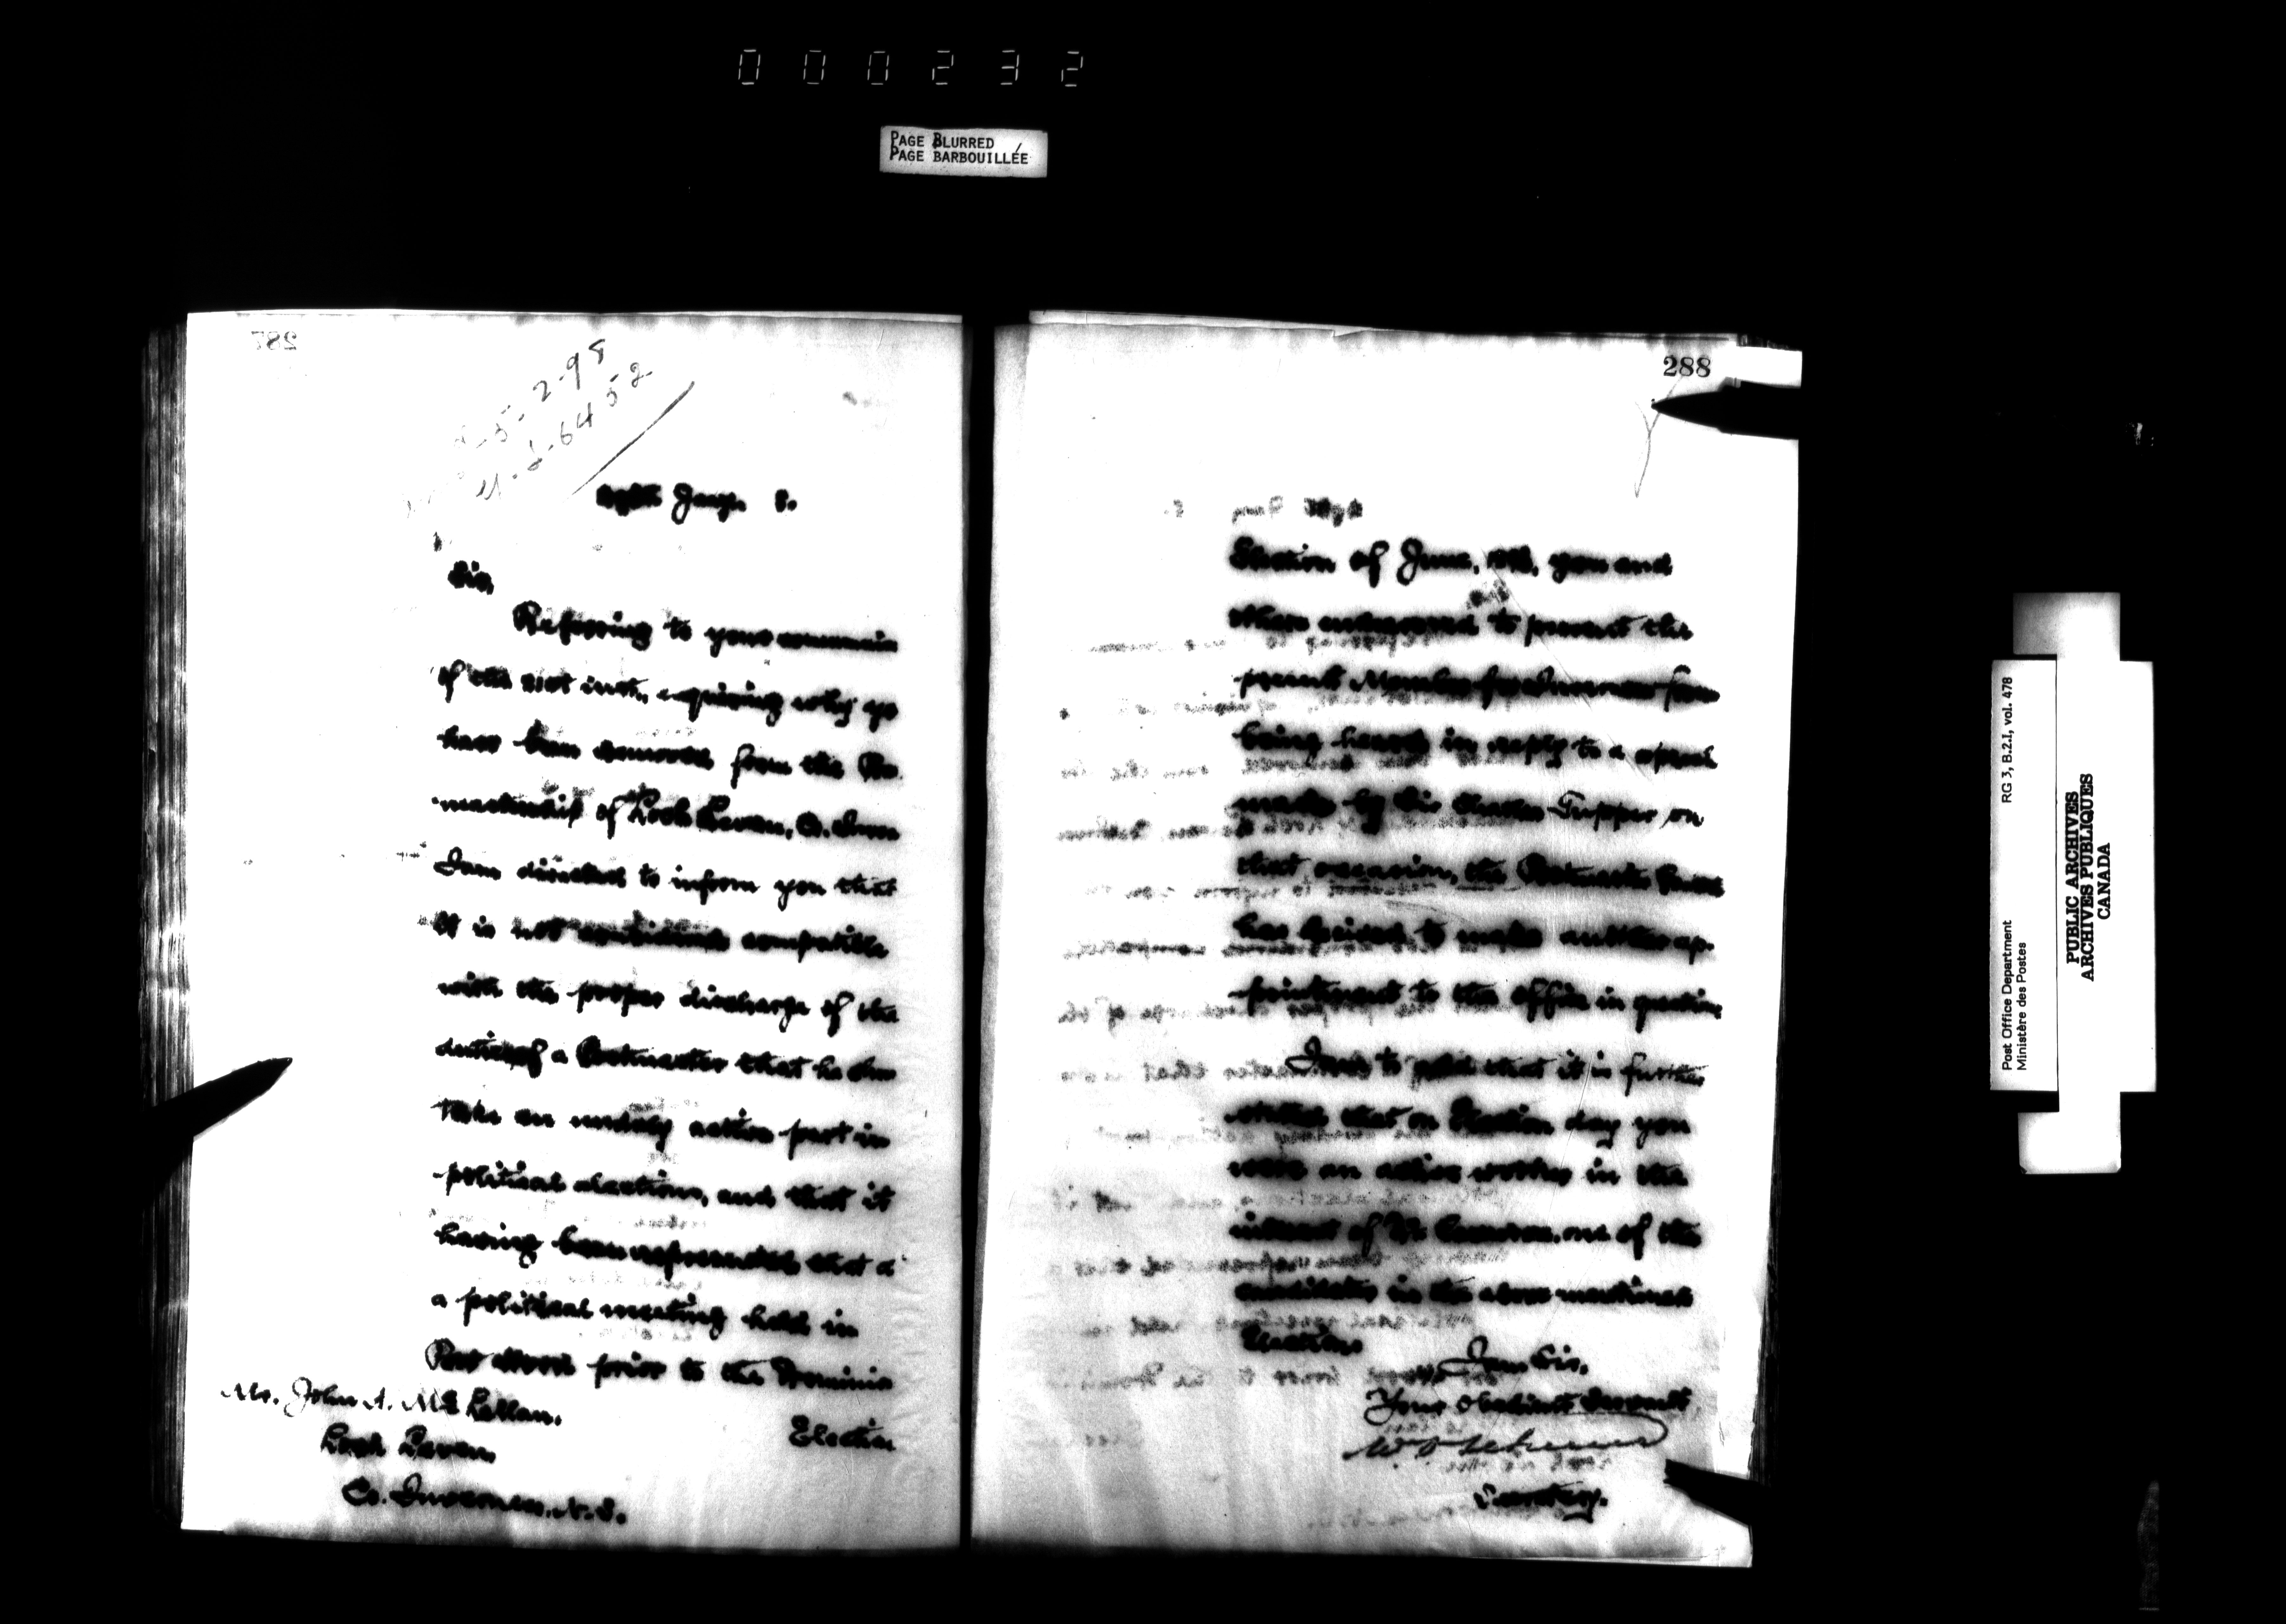 000232
PAGE BLURRED
PAGE BARBOUILLÉE
287
5-2-98
6452
Jany. 8.
Sir,
Referring to your commun
of the 21st inst., enquiring why yo
have been removed from the Po
mastership of Loch Leven, Co. Inver
I am directed to inform you that
it is not considered compatible
with the proper discharge of the
duties of a Postmaster that he shou
take an unduly active part in
political elections, and that it
having been represented that a
a political meeting held in
Port Hood prior to the Dominio
Election
Mr. John A. McLellan,
Loch Leven,
Co. Inverness, N.S.
288
Election of June, 1896, you and
others endeavored to prevent the
present Member for Inverness from
being heard in reply to a speech
made by Sir Charles Tupper on
that occasion, the Postmaster General
has decided to make another ap-
pointment to the office in question.
I am to add that it is further
stated that on Election day you
were an active worker in the
interest of Mr. Cameron, one of the
candidates in the above mentioned
Election.
I am, Sir,
Your obedient Servant,
Secretary.
Post Office Department
Ministère des Postes
RG 3, B.2.I, vol. 478
PUBLIC ARCHIVES
ARCHIVES PUBLIQUES
CANADA